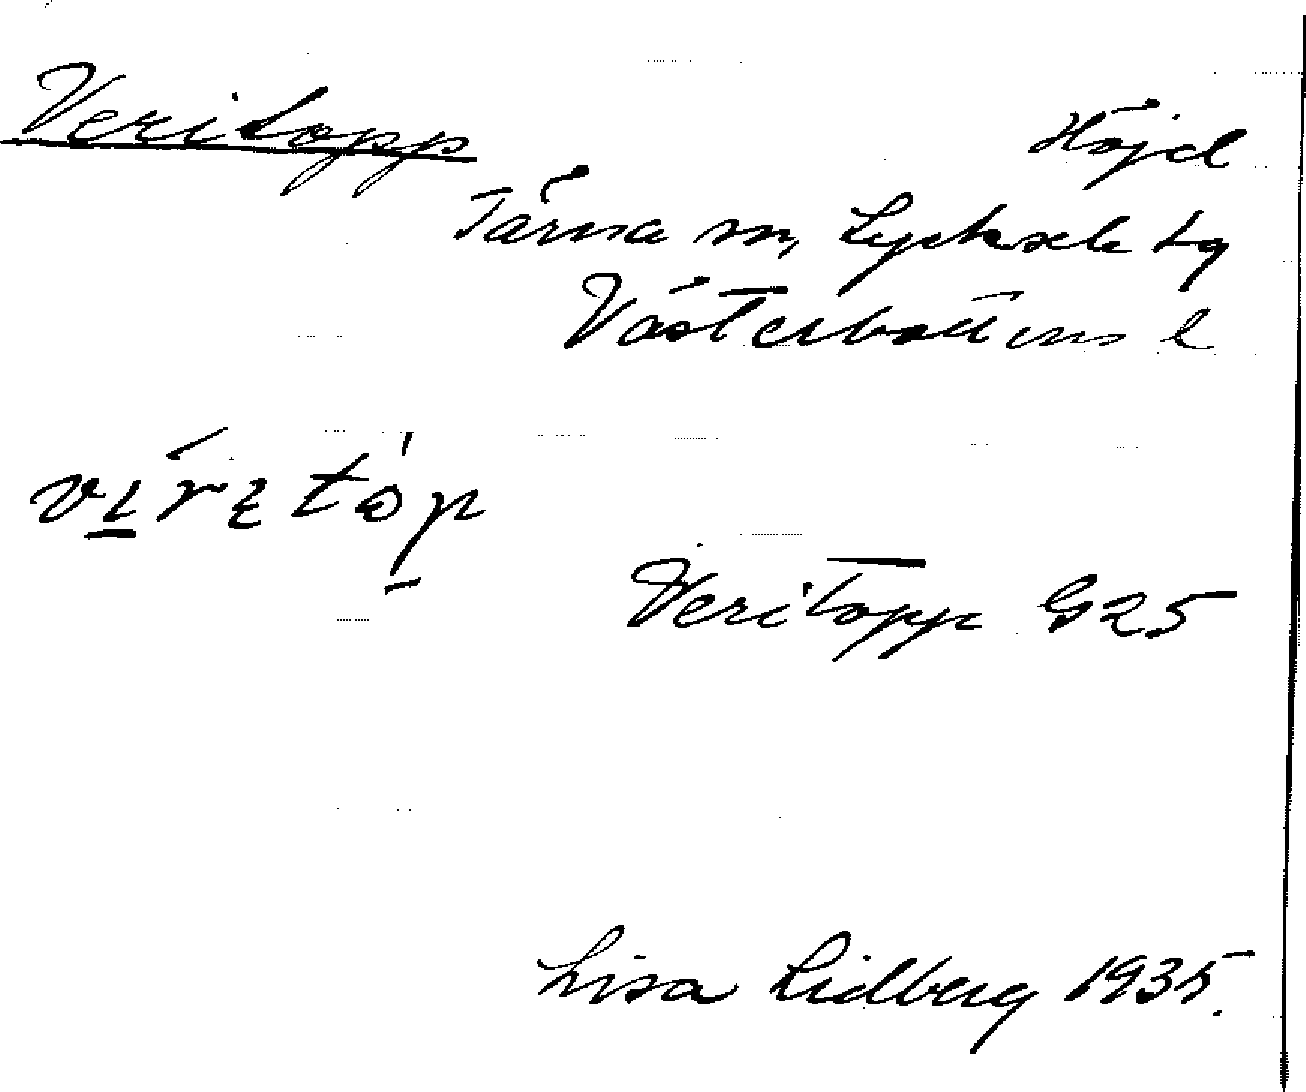 Veritopp Höjd
Tärna sn, Lycksele tg
Västerbottens l
Veritopp G25
Lisa Lidberg 1935.